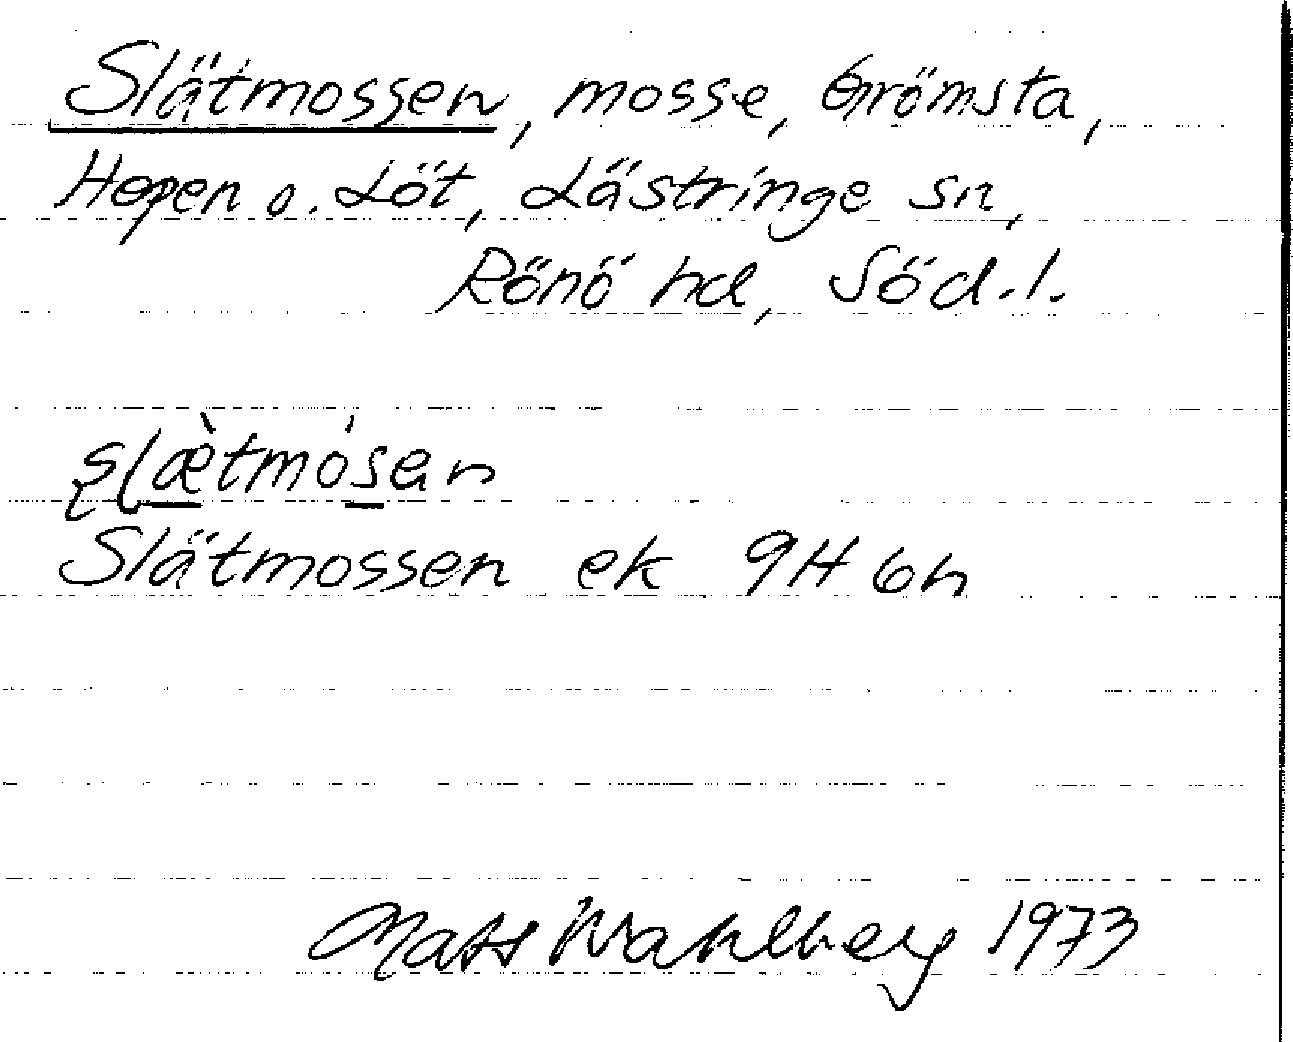 Slätmossen, mosse, Grömsta,
Hepen o. Löt, Lästringe sn,
Rönö hd, Söd.l.
ʂɭæ̀tmósen
Slätmossen ek 9H 6h
Mats Wahlberg 1973